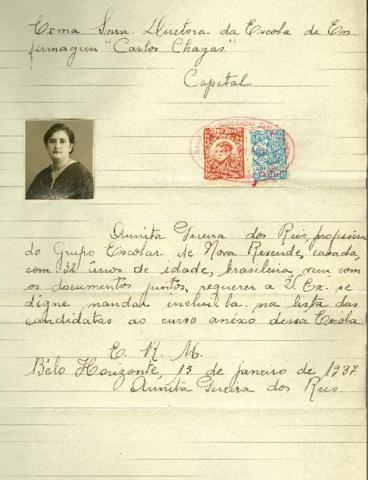 Exma Snra. Diretora da Escola de En-
fermagem "Carlos Chagas"
Capital
Annita Pereira dos Reis, professora
do Grupo Escolar de Nova Resende, casada,
com 32 anos de idade, brasileira, vem com
os documentos juntos, requerer a V. Ex. se
digne mandar incluil-a na lista das
candidatas ao curso anéxo dessa Escola
E. R. M.
Bélo Horizonte, 15 de janeiro de 1937
Annita Pereira dos Reis